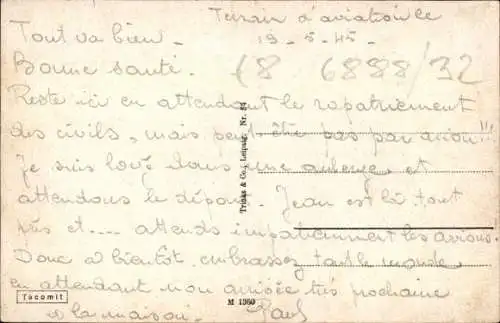 Terrain d'aviation le
19-5-45-
Tout va bien -
Bonne santé.
68 6888/32
Reste ici en attendant le rapatriement
des civils, mais peut être pas par avion!!!
Je suis logé dans une auberge et
attendons le départ. Jean est là tout
près et.... attends impatiemment les avions.
Donc à bientôt embrassez tout le monde
en attendant mon arrivée très prochaine
à la maison. Paul
Trinks & Co., Leipzig. Nr. 24
Tacomit
M 1360